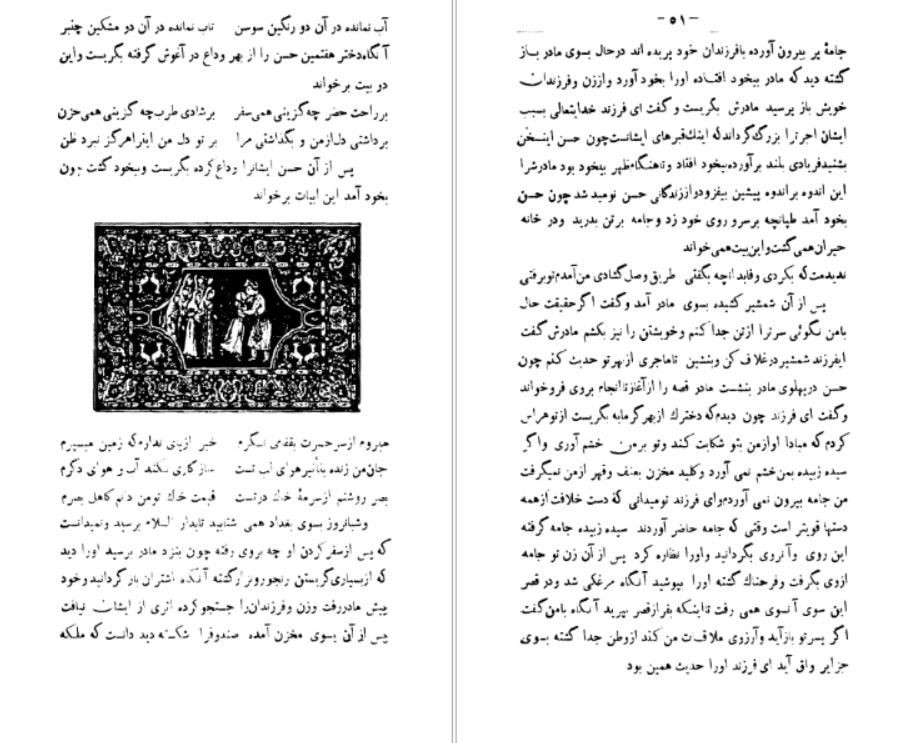 آب نمانده در آن دو رنگین سوسن تاب نمانده در آن دو مشکین چنبر
آنگاه دختر هفتمین حسن را از بهر وداع در آغوش گرفته بگریست واین
دو بیت برخواند
بر راحت حضر چه گزینی همی سفر بر شادی طرب چه گزینی همی حزن
برداشتی دل ازمن و بگذاشتی مرا بر تو دل من اینرا هرگز نبرد ظن
پس از آن حسن ایشانرا وداع کرده بگریست وبیخود گشت چون
بخود آمد این ابیات برخواند
میروم ازسر حسرت بقفای نگرم خبر ازپای ندارم که زمین میسپرم
جان من زنده بتأثیر هوای لب تست ساز گاری نکند آب و هوای دگرم
بصر روشنم ازسرمهٔ خاک درتست قیمت خاک تو من دانم کاهل بصرم
وشبانروز بسوی بغداد همی شتابید تابدار السلام برسید ونمیدانست
که پس ازسفر کردن او چه بروی رفته چون بنزد مادر برسید اورا دید
که ازبسیاری گریستن رنجور ونزار گشته آنگاه اشتران باز گردانید وخود
پیش مادر رفت وزن وفرزندان را جستجو کرده اثری از ایشان نیافت
پس از آن بسوی مخزن آمده صندوقرا شکسته دید دانست که ملکه
- ۵۱ -
جامهٔ پر بیرون آورده بافرزندان خود پریده اند درحال بسوی مادر باز
گشته دید که مادر بیخود افتاده اورا بخود آورد واززن وفرزندان
خویش باز پرسید مادرش بگریست و گفت ای فرزند خدایتعالی بسبب
ایشان اجر ترا بزرگ گرداند که اینک قبرهای ایشانست چون حسن اینسخن
بشنید فریادی بلند برآورده بیخود افتاد وتاهنگام ظهر بیخود بود مادرش را
این اندوه بر اندوه پیشین بیفزود واززندگانی حسن نومید شد چون حسن
بخود آمد طپانچه برسر و روی خود زد وجامه برتن بدرید ودر خانه
حیران همی گشت واین بیت همی خواند
ندیدمت که بکردی وفا بدانچه بگفتی طریق وصل گشادی من آمدم تو برفتی
پس از آن شمشیر کشیده بسوی مادر آمد وگفت اگر حقیقت حال
بامن نگوئی سر ترا ازتن جدا کنم وخویشتن را نیز بکشم مادرش گفت
ایفرزند شمشیر درغلاف کن وبنشین تاماجری ازبهر تو حدیث کنم چون
حسن درپهلوی مادر بنشست مادر قصه را ازآغاز تا انجام بروی فروخواند
وگفت ای فرزند چون دیدم که دخترک ازبهر گرمابه بگریست ازتو هراس
کردم که مبادا اوازمن بتو شکایت کند وتو برمن خشم آوری واگر
سیده زبیده بمن خشم نمی آورد وکلید مخزن بعنف وقهر ازمن نمیگرفت
من جامه بیرون نمی آوردم وای فرزند تومیدانی که دست خلافت ازهمه
دستها قویتر است وقتی که جامه حاضر آوردند سیده زبیده جامه گرفته
این روی وآنروی بگردانید واورا نظاره کرد پس از آن زن تو جامه
ازوی بگرفت وفرحناک گشته اورا بپوشید آنگاه مرغکی شد ودر قصر
این سوی آنسوی همی رفت تا اینکه بفراز قصر بپرید آنگاه بامن گفت
اگر پسر تو بازآید وآرزوی ملاقات من کند ازوطن جدا گشته بسوی
جزایر واق آید ای فرزند اورا حدیث همین بود